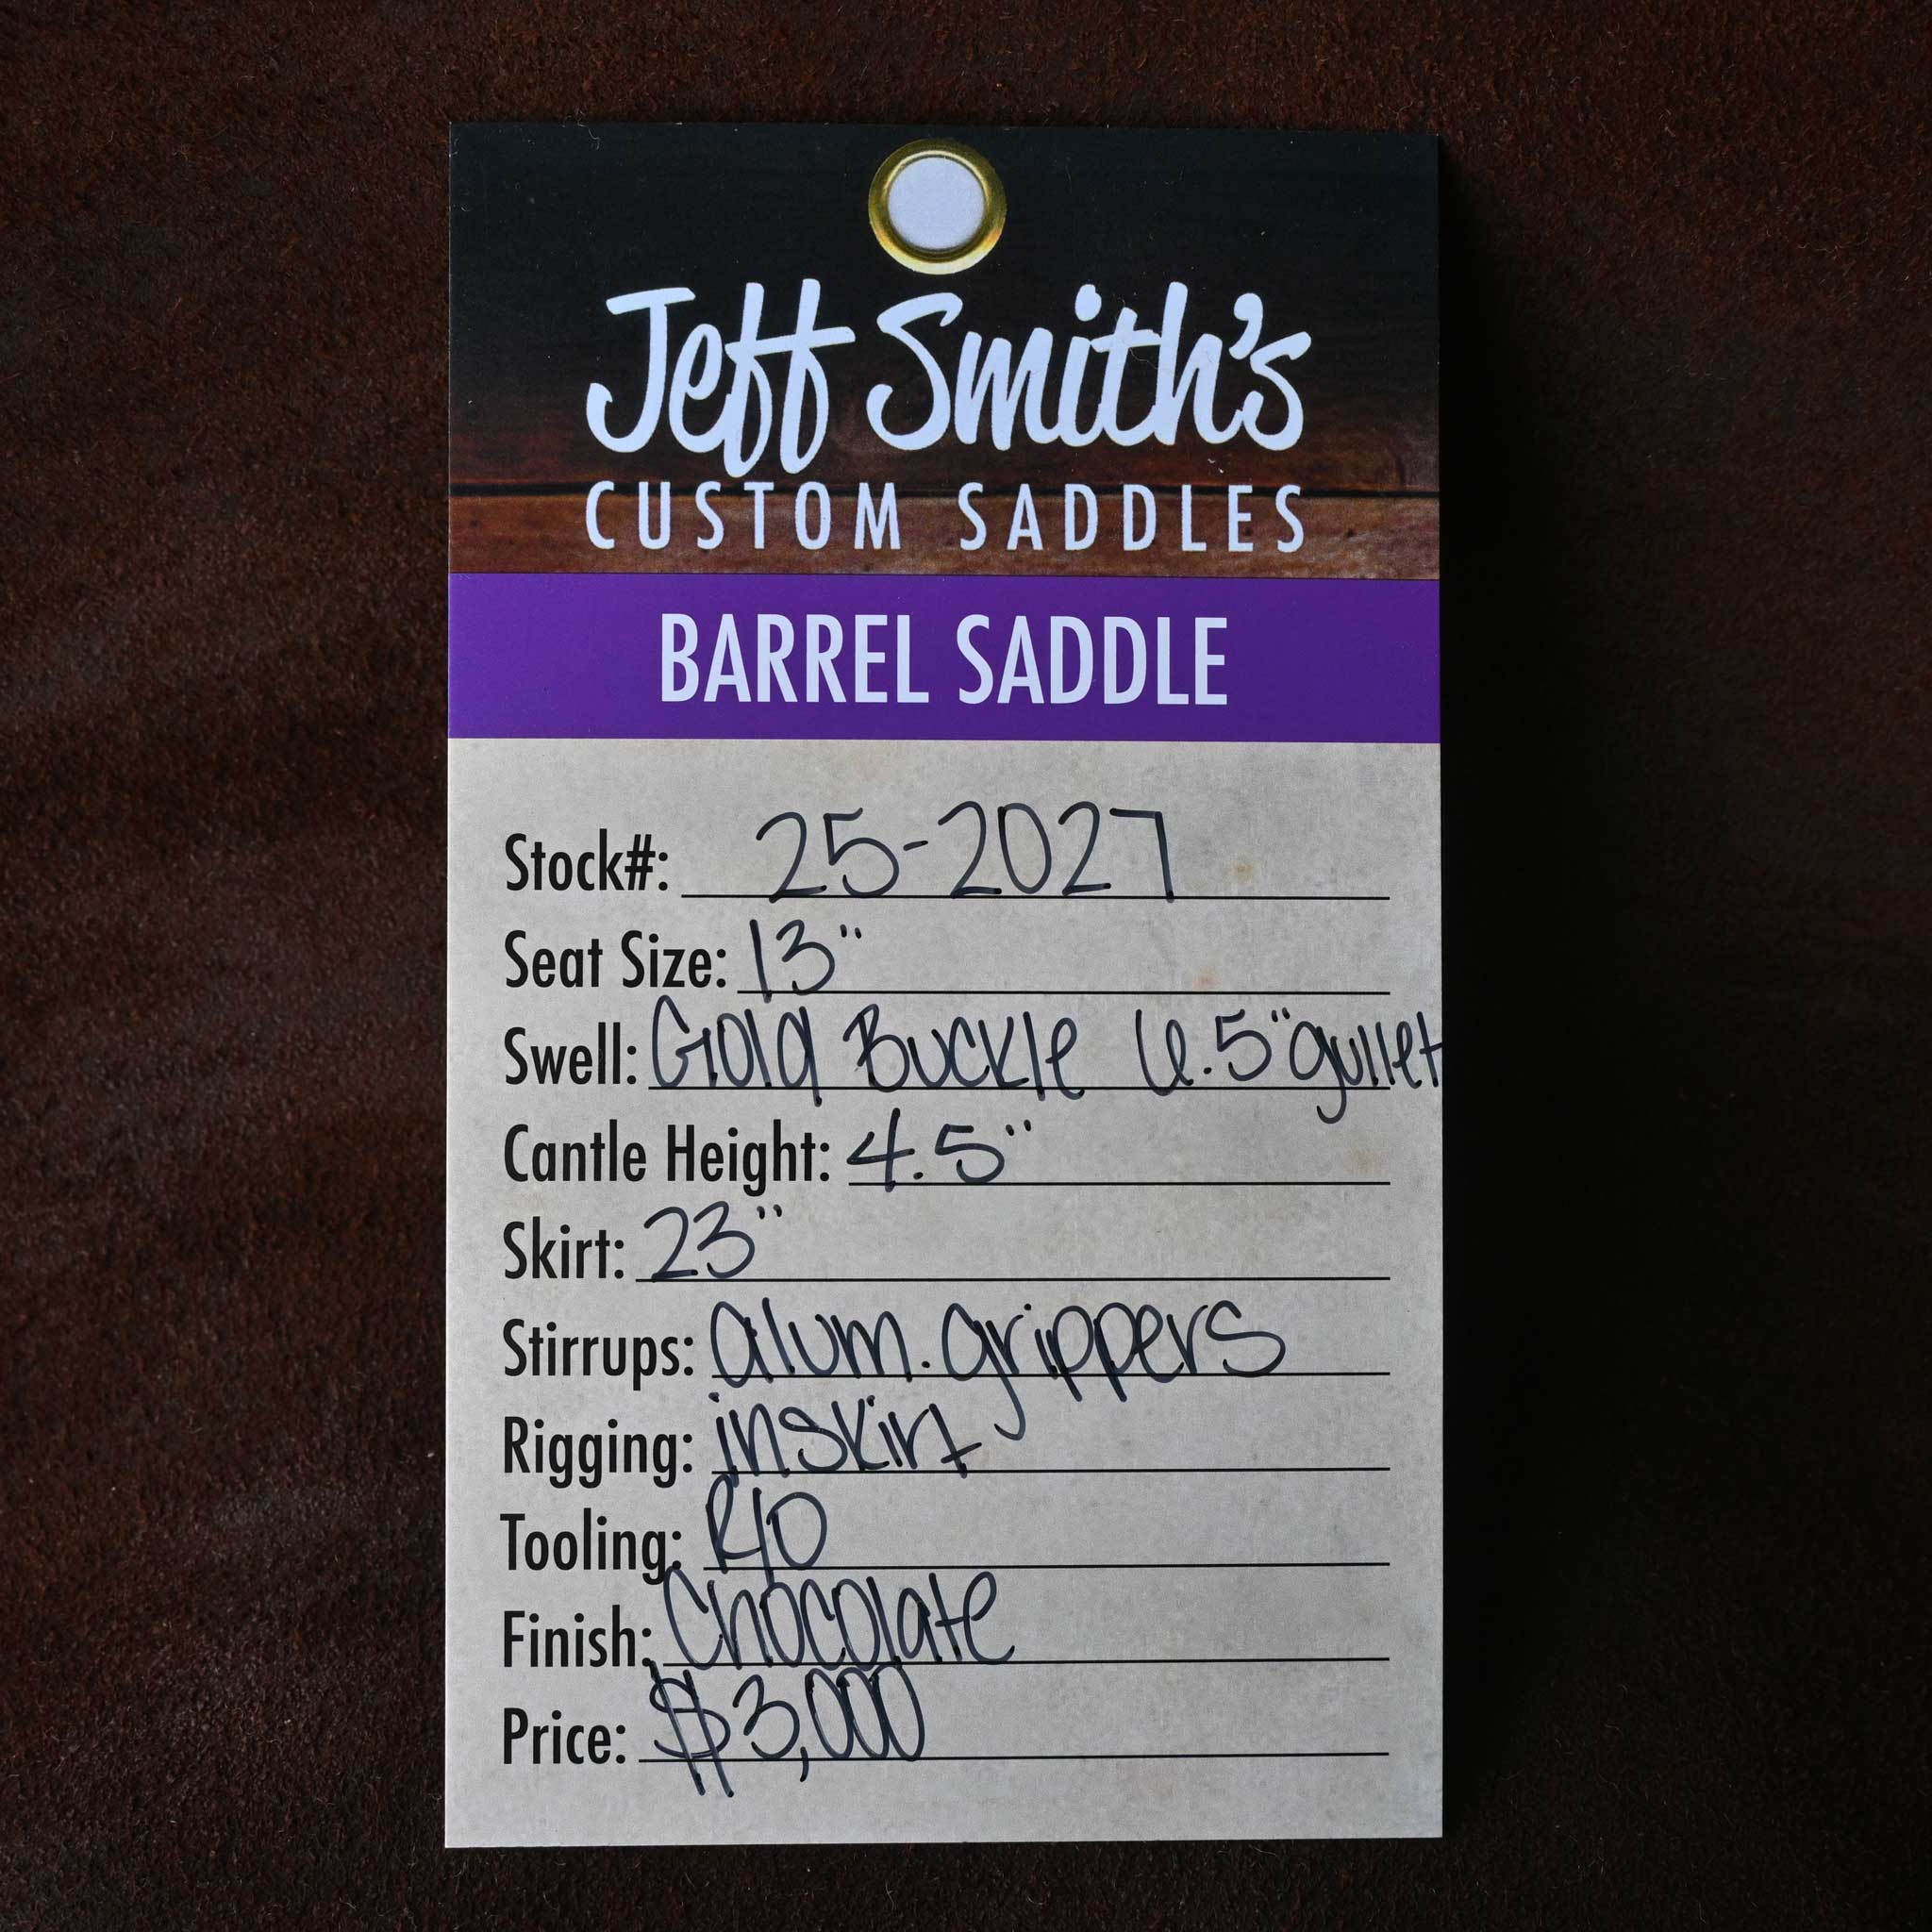 Jeff Smith's
CUSTOM SADDLES
BARREL SADDLE
Stock#: 25-2027
Seat Size: 13"
Swell: Gold Buckle 6.5" gullet
Cantle Height: 4.5"
Skirt: 23"
Stirrups: alum. grippers
Rigging: inskirt
Tooling: R/O
Finish: Chocolate
Price: $3,000